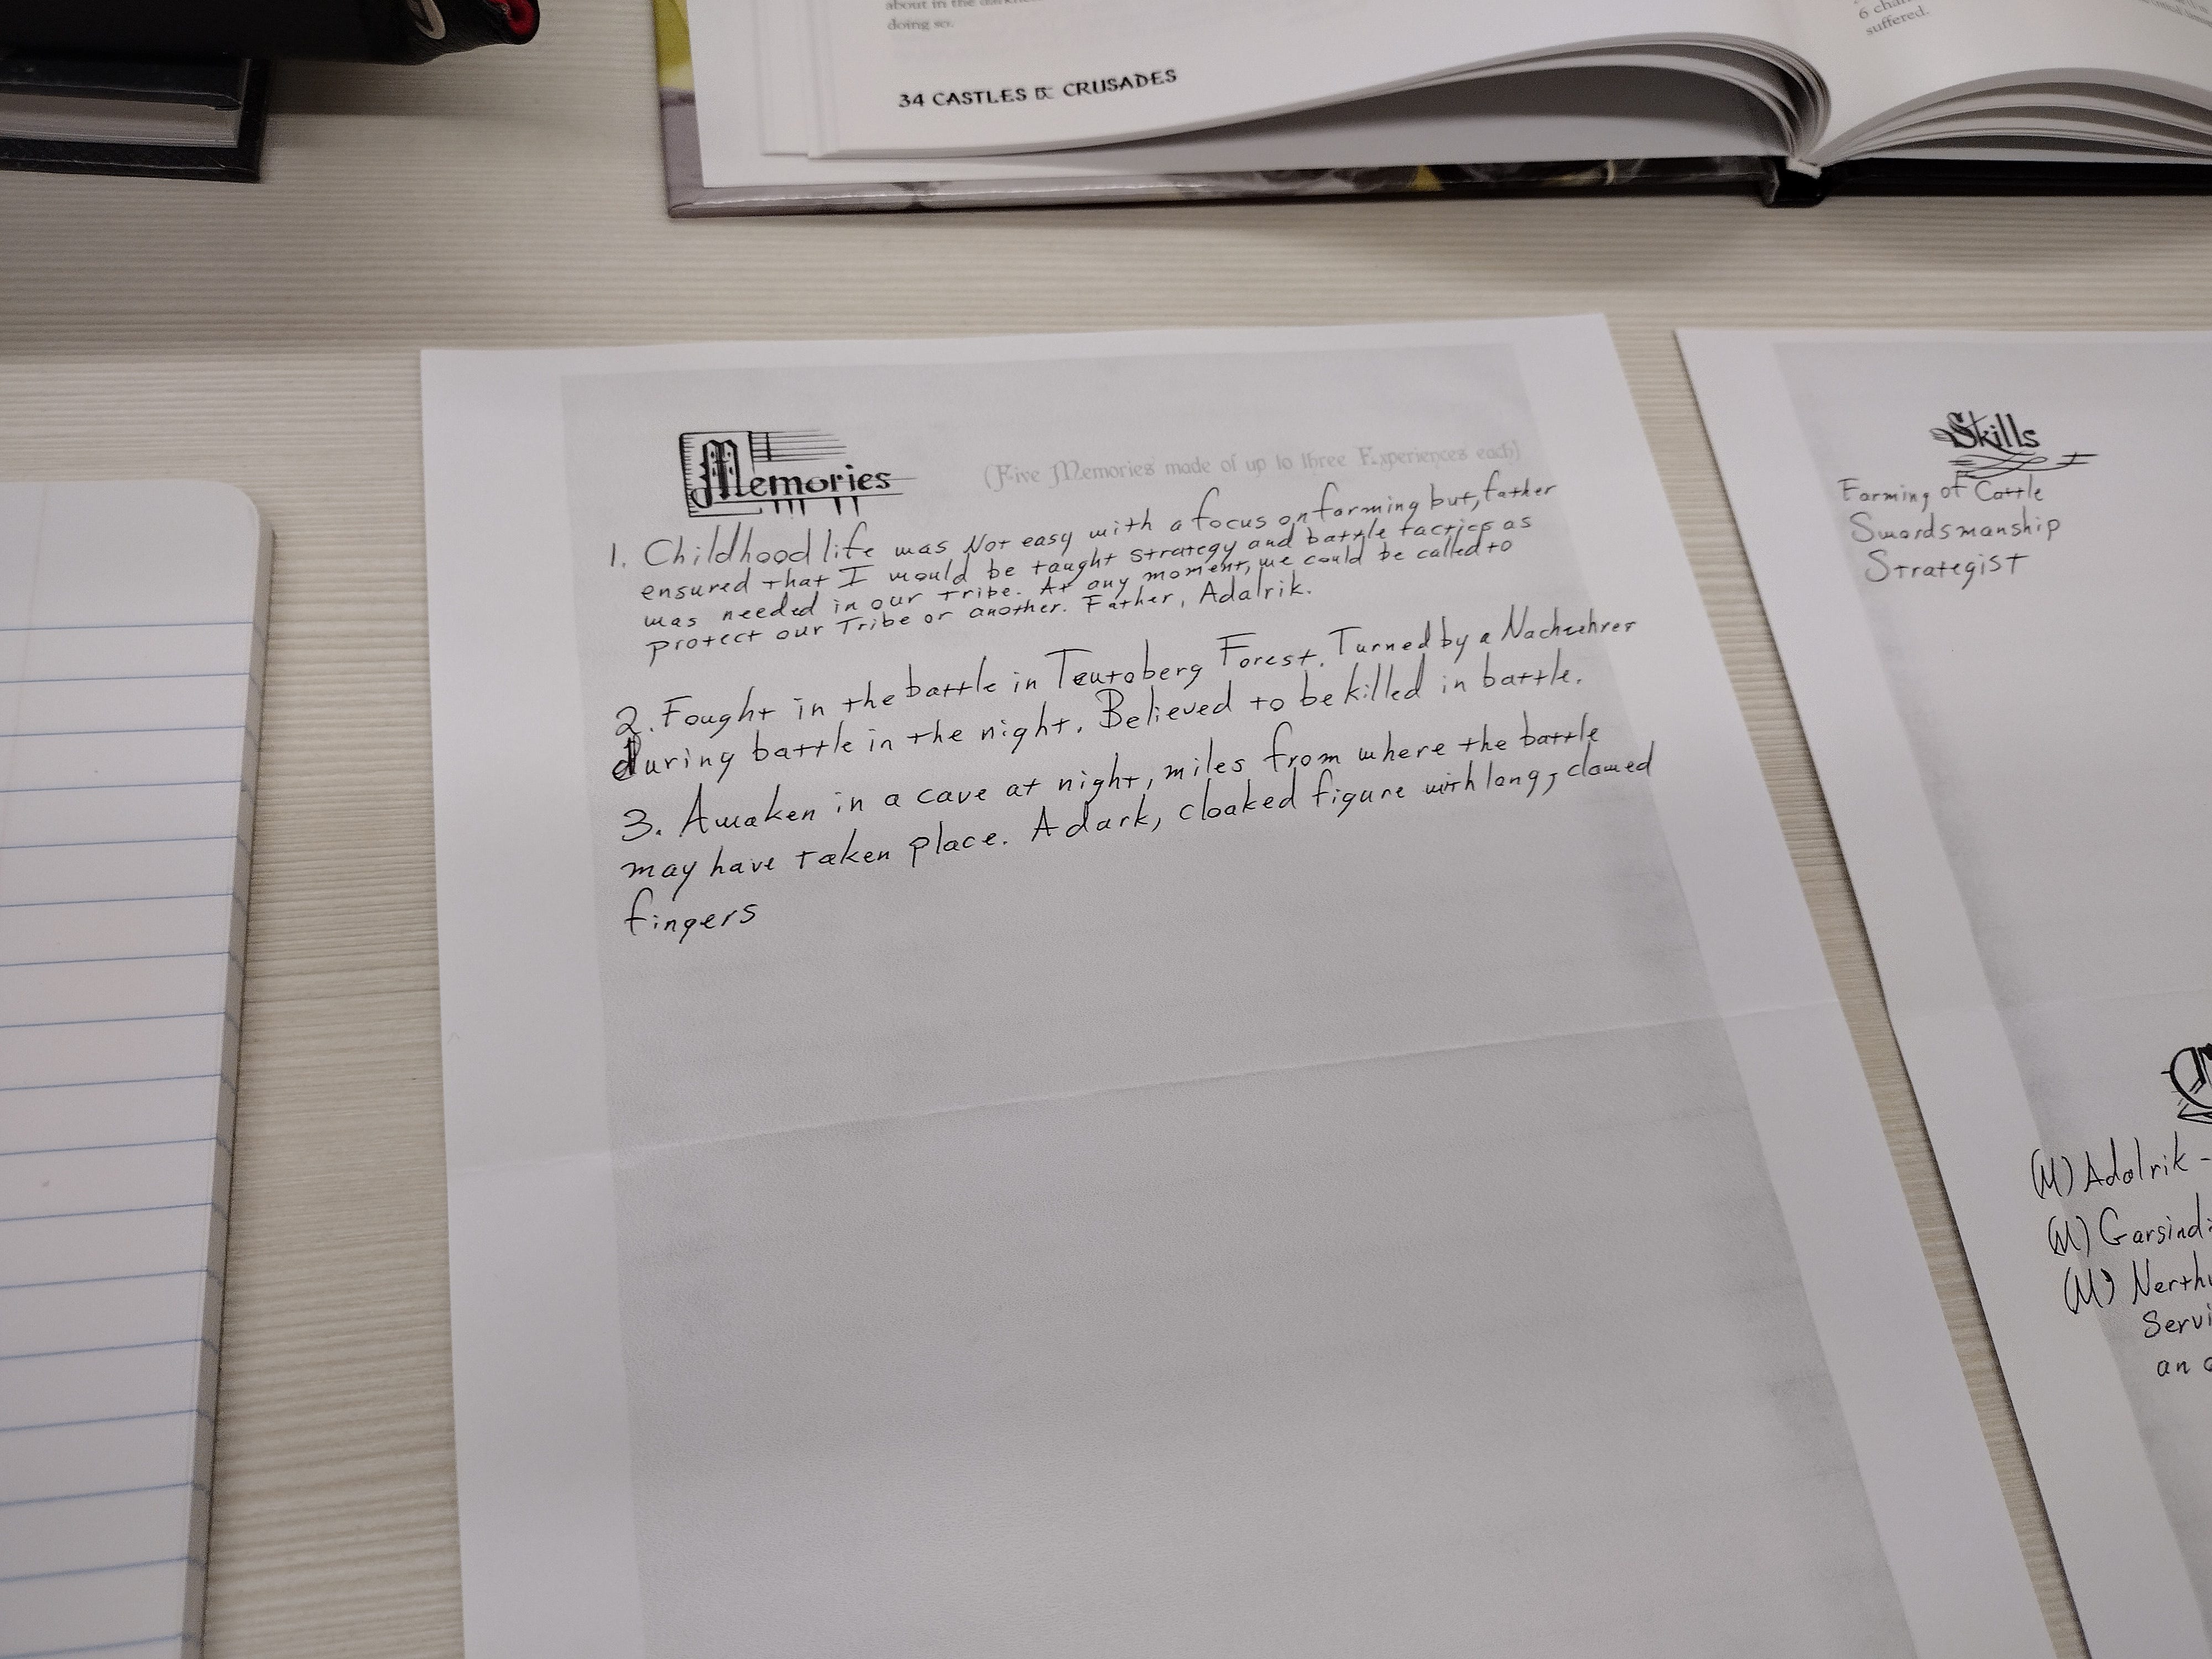 about in the
doing so.
34 CASTLES & CRUSADES
6
suffered.
Memories
(Five Memories made of up to three Experiences each)
1. Childhood life was Not easy with a focus on farming but, father
ensured that I would be taught strategy and battle tactics as
was needed in our Tribe. At any moment, we could be called to
protect our Tribe or another. Father, Adalrik.
2. Fought in the battle in Teutoberg Forest. Turned by a Nachzehrer
during battle in the night. Believed to be killed in battle.
3. Awaken in a cave at night, miles from where the battle
may have taken place. A dark, cloaked figure with long, clawed
fingers
Skills
Farming of Cattle
Swordsmanship
Strategist
(M) Adalrik -
(M) Garsind
(M) Nerthu
Servi
an